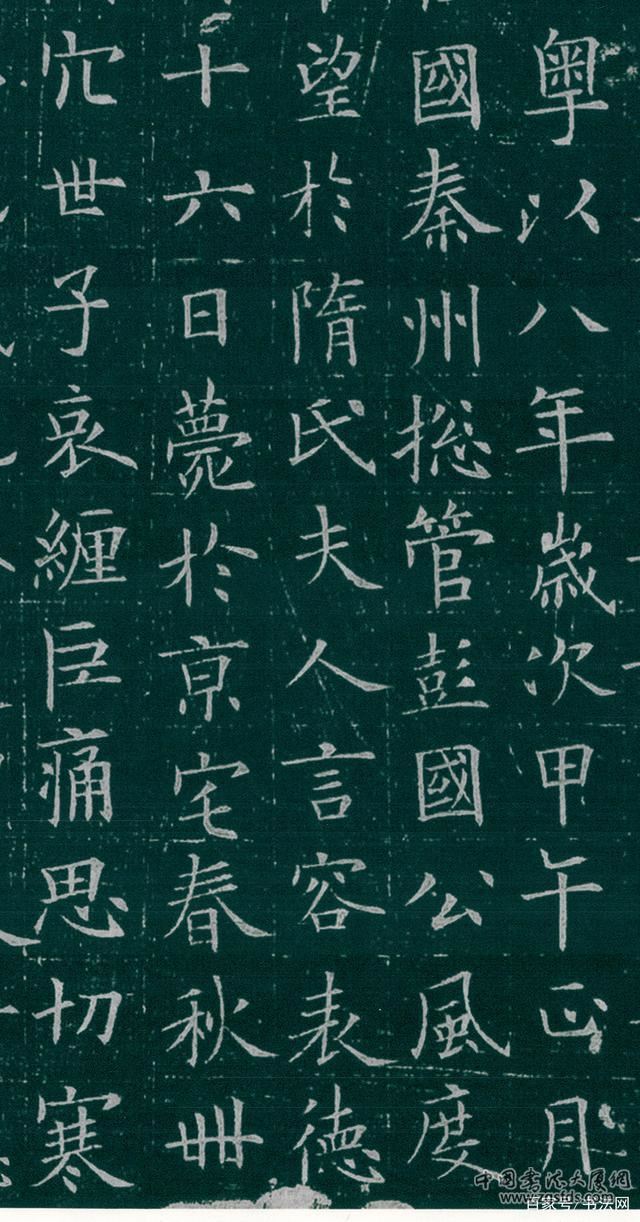 粤以八年歲次甲午正月
國秦州捴管彭國公風度
望於隋氏夫人言容表德
十六日薨於京宅春秋卌
穴世子哀纏巨痛思切寒
中国书法大展网
www.zgsfds.com
百家号/书法网